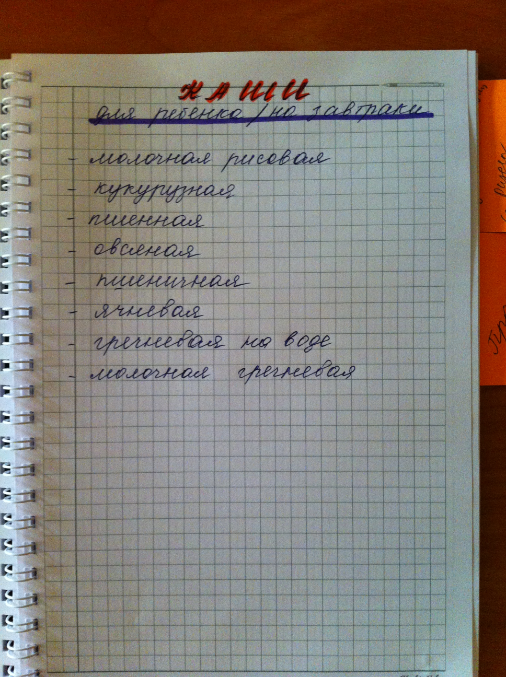 КАШИ
для ребенка / на завтраки
- молочная рисовая
- кукурузная
- пшенная
- овсяная
- пшеничная
- ячневая
- гречневая на воде
- молочная гречневая